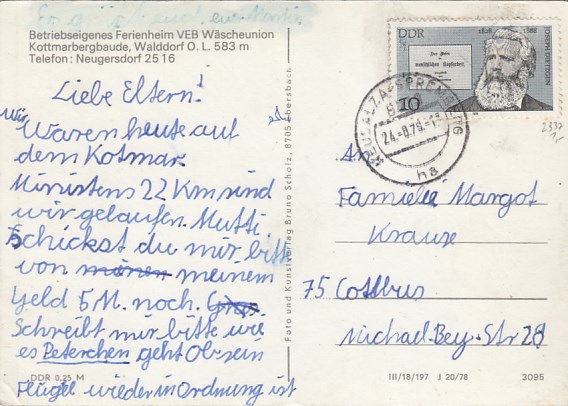 Es g
euer Martin
Betriebseigenes Ferienheim VEB Wäscheunion
Kottmarbergbaude, Walddorf O. L. 583 m
Telefon: Neugersdorf 25 16
Liebe Eltern!
Wir
Waren heute auf
dem Kotmar
Ministens 22 Km sind
wir gelaufen. Mutti
Schickst du mir bitte
von meinem
geld 5 M. noch.
Schreibt mir bitte wie
es Peterchen geht Ob sein
Flügel wieder in Ordnung ist
DDR 0,25 M
Foto und Kunstverlag Bruno Scholz, 8705 Ebersbach
DDR
1828
1888
JOSEPH DIETZGEN
Das Wesen
der
menschlichen Kopfarbeit
10
NEUSALZA-SPREMBERG
24.-8.79.
ha
2337
An
Familie Margot
Krause
75 Cottbus
Michael-Bey-Str 28
III/18/197 J 20/78
3095